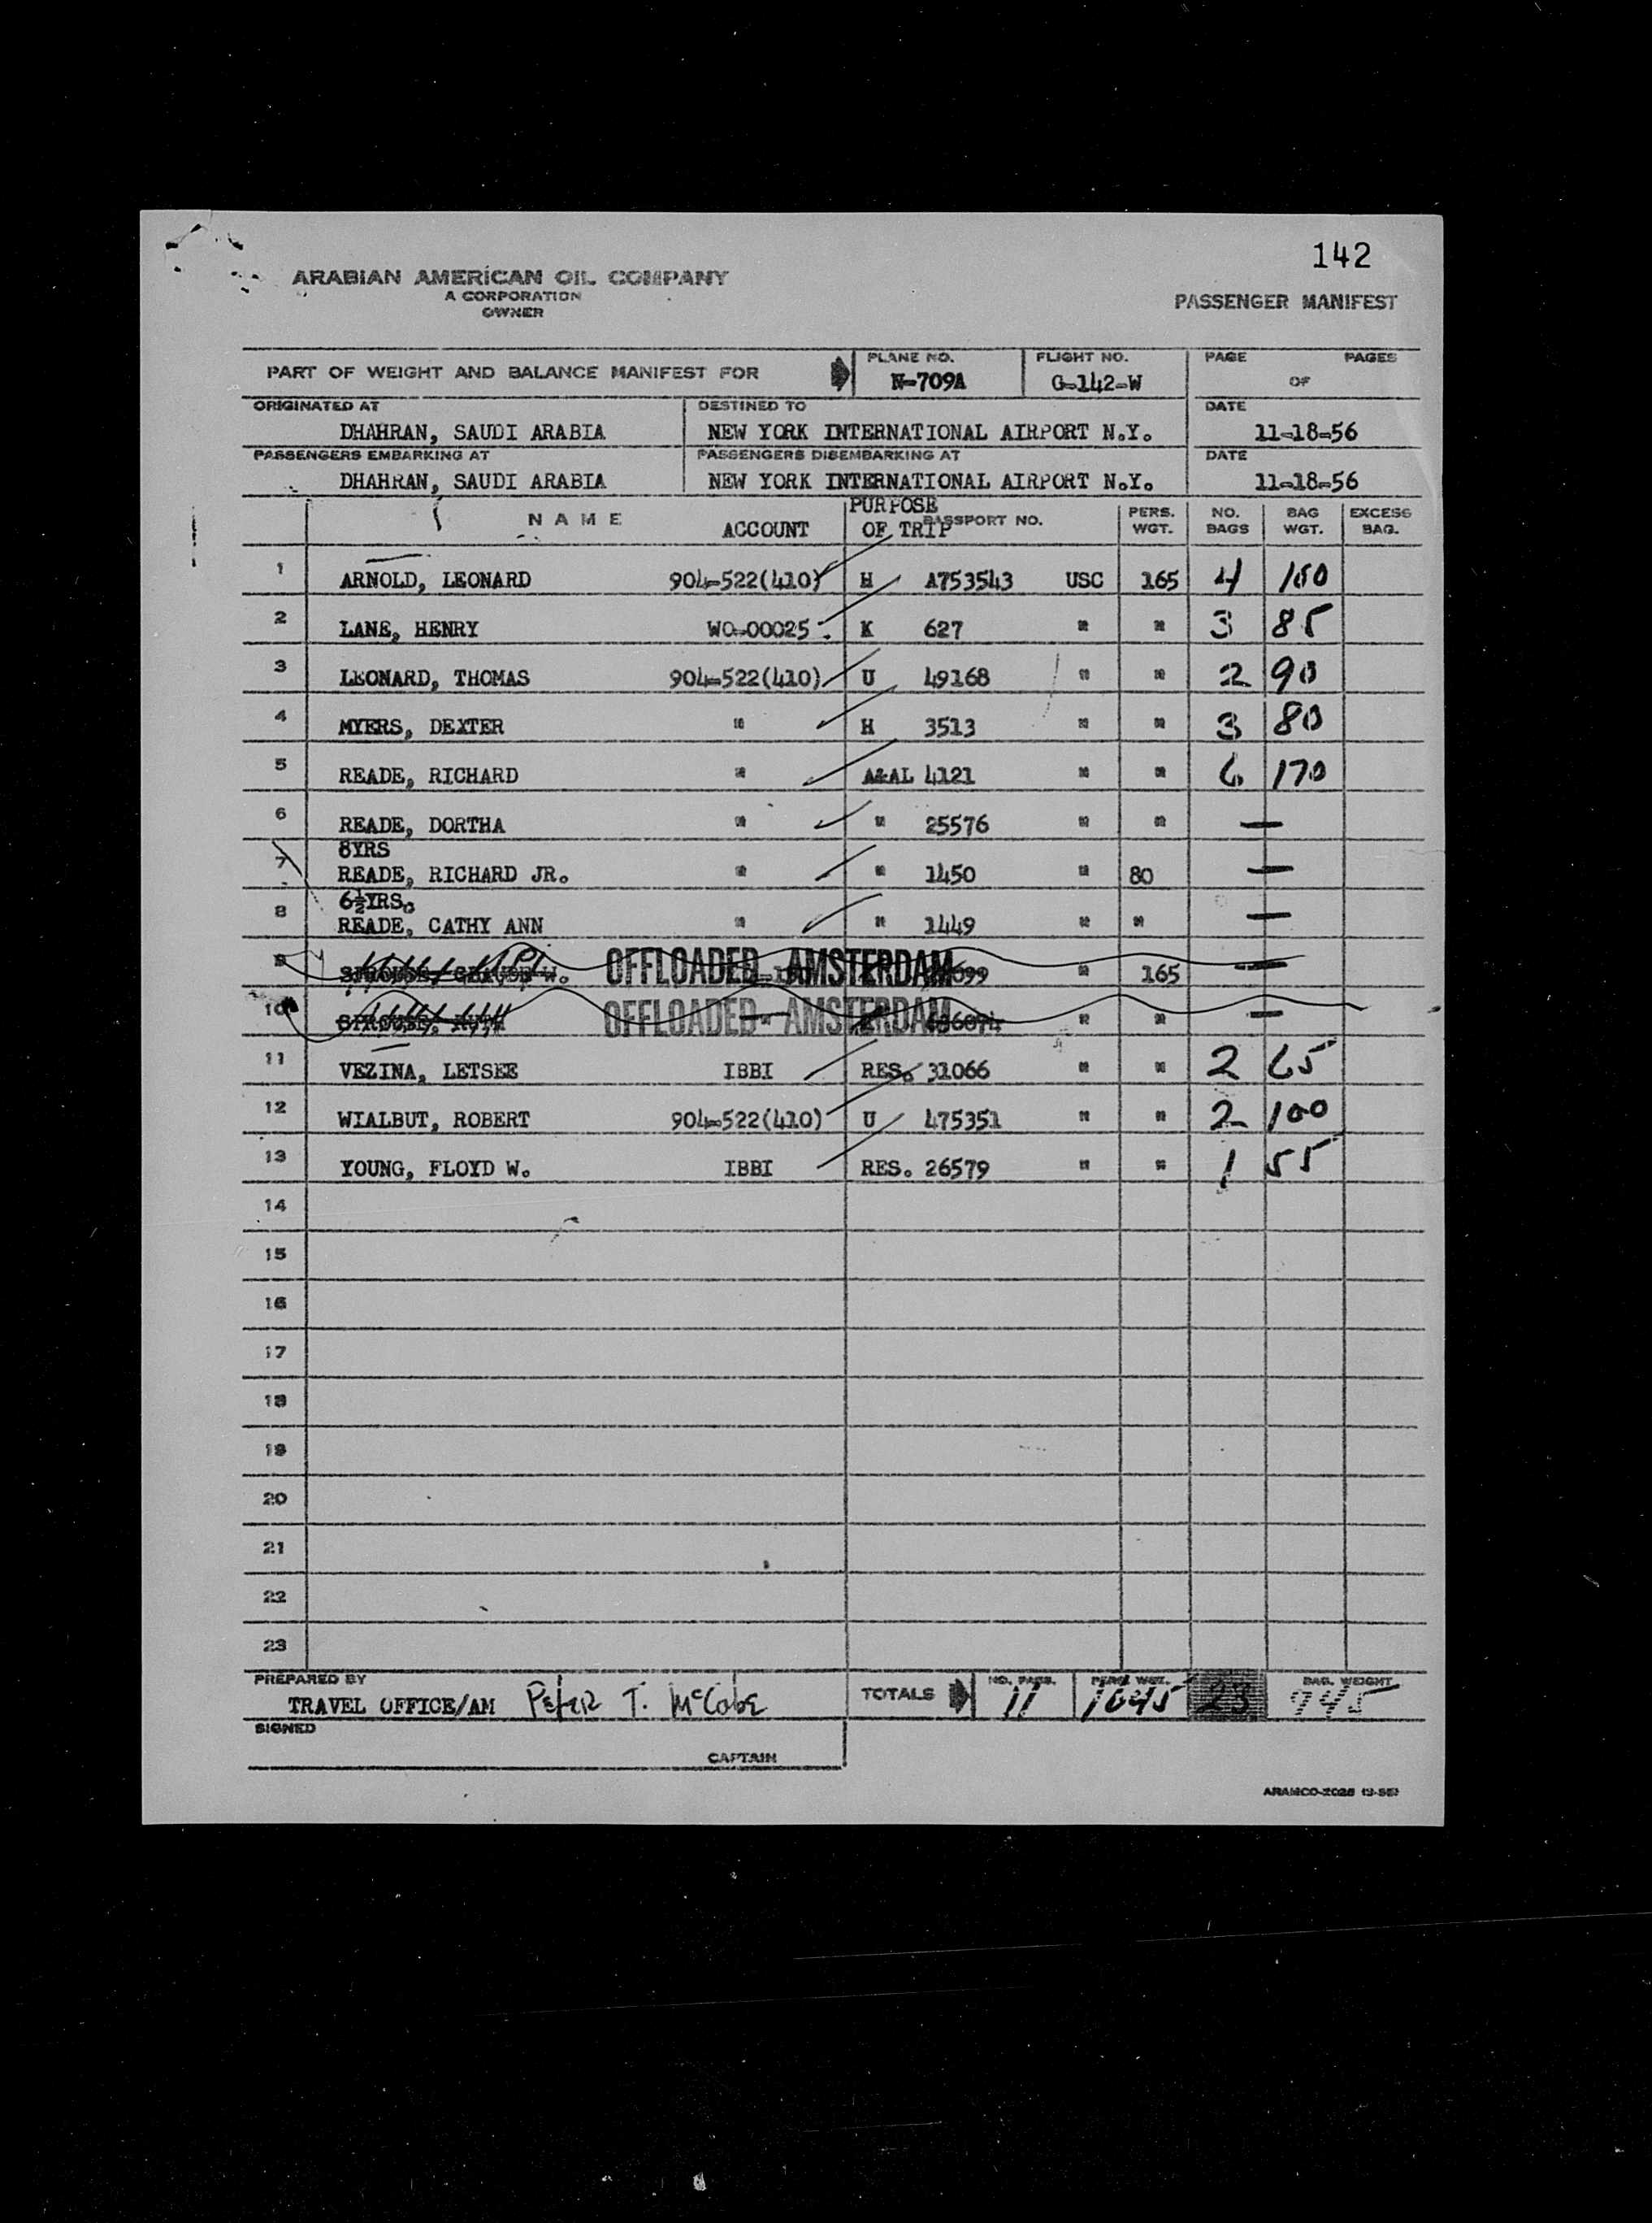 142
ARABIAN AMERICAN OIL COMPANY
A CORPORATION
OWNER
PASSENGER MANIFEST
PART OF WEIGHT AND BALANCE MANIFEST FOR PLANE NO. N-709A FLIGHT NO. G-142-W PAGE OF PAGES
ORIGINATED AT DESTINED TO DATE
DHAHRAN, SAUDI ARABIA NEW YORK INTERNATIONAL AIRPORT N.Y. 11-18-56
PASSENGERS EMBARKING AT PASSENGERS DISEMBARKING AT DATE
DHAHRAN, SAUDI ARABIA NEW YORK INTERNATIONAL AIRPORT N.Y. 11-18-56
NAME ACCOUNT PURPOSE OF TRIP PASSPORT NO. PERS. WGT. NO. BAGS BAG WGT. EXCESS BAG.
1 ARNOLD, LEONARD 904-522(410) H A753543 USC 165 4
2 LANE, HENRY WO-00025 K 627 " " 3 85
3 LEONARD, THOMAS 904-522(410) U 49168 " " 2 90
4 MYERS, DEXTER " H 3513 " " 3 80
5 READE, RICHARD " A&AL 4121 " " 6 170
6 READE, DORTHA " " 25576 " " —
8YRS
7 READE, RICHARD JR. " " 1450 " 80 —
6½YRS.
8 READE, CATHY ANN " " 1449 " " —
9 W. OFFLOADED - AMSTERDAM " 165 —
10 OFFLOADED - AMSTERDAM " " —
11 VEZINA, LETSEE IBBI RES. 31066 " " 2 65
12 WIALBUT, ROBERT 904-522(410) U 475351 " " 2 100
13 YOUNG, FLOYD W. IBBI RES. 26579 " " 1 55
14
15
16
17
18
19
20
21
22
23
PREPARED BY
TRAVEL OFFICE/AM Peter T. McCabe TOTALS NO. PASS. 11 PERS. WGT. 1645 23 BAG. WEIGHT
SIGNED
CAPTAIN